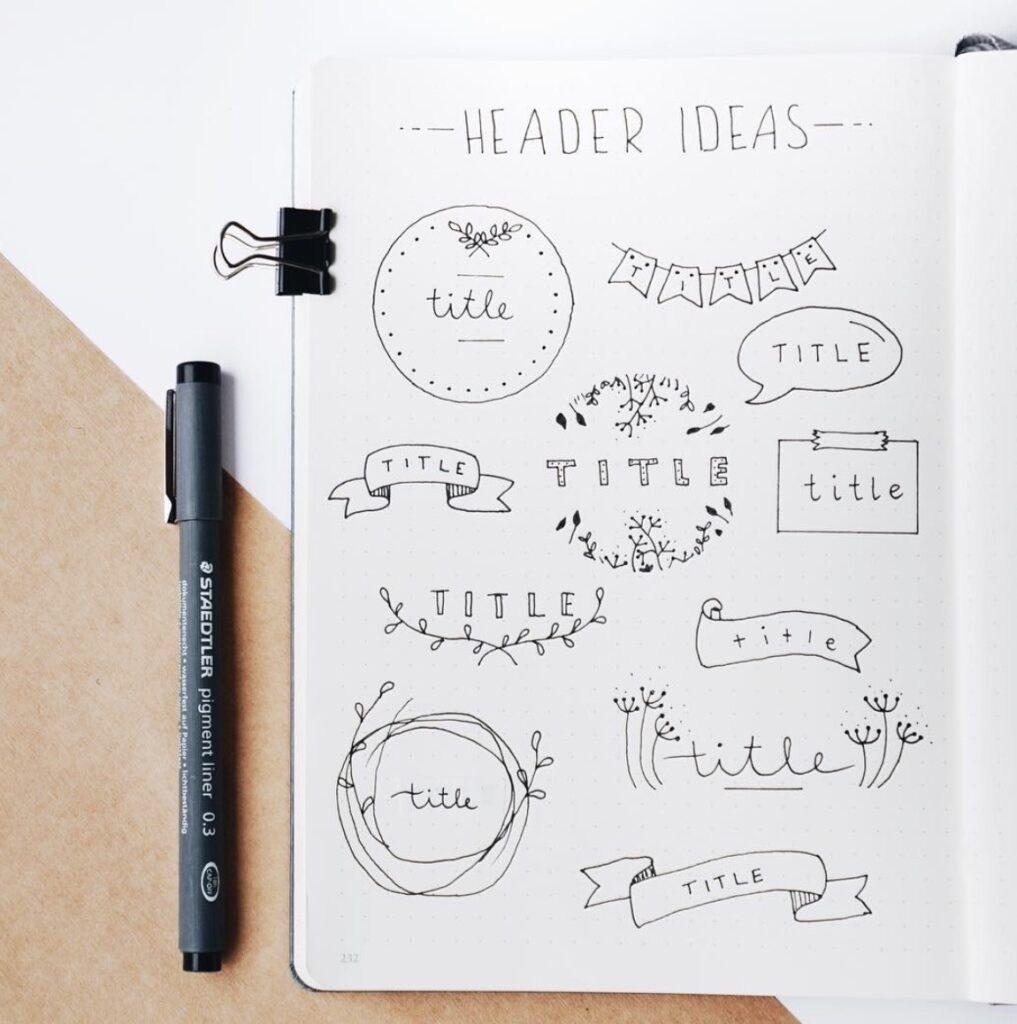 HEADER IDEAS
title
TITLE
TITLE
TITLE
TITLE
title
TITLE
title
title
title
TITLE
232
STAEDTLER pigment liner 0.3
dokumentenecht • wasserfest auf Papier • lichtbeständig